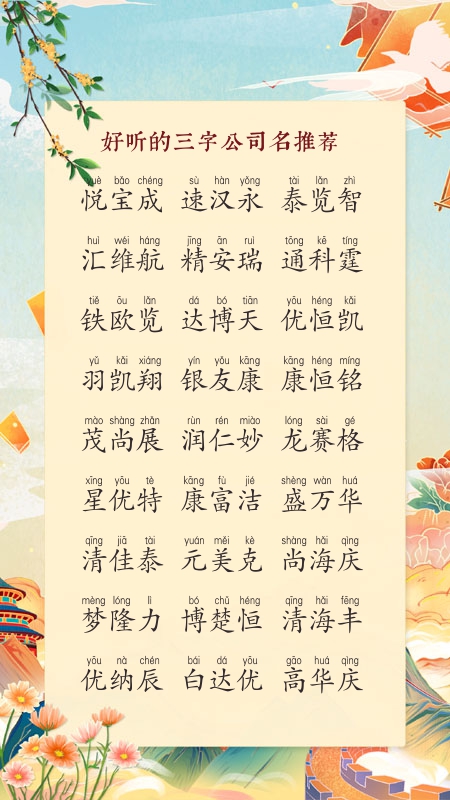 好听的三字公司名推荐
uè bǎo chéng sù hàn yǒng tài lǎn zhì
悦宝成 速汉永 泰览智
huì wéi háng jīng ān ruì tōng kē tíng
汇维航 精安瑞 通科霆
tiě ōu lǎn dá bó tiān yōu héng kǎi
铁欧览 达博天 优恒凯
yǔ kǎi xiáng yín yǒu kāng kāng héng míng
羽凯翔 银友康 康恒铭
mào shàng zhǎn rùn rén miào lóng sài gé
茂尚展 润仁妙 龙赛格
xīng yōu tè kāng fù jié shèng wàn huá
星优特 康富洁 盛万华
qīng jiā tài yuán měi kè shàng hǎi qìng
清佳泰 元美克 尚海庆
mèng lóng lì bó chǔ héng qīng hǎi fēng
梦隆力 博楚恒 清海丰
yōu nà chén bái dá yōu gāo huá qìng
优纳辰 白达优 高华庆